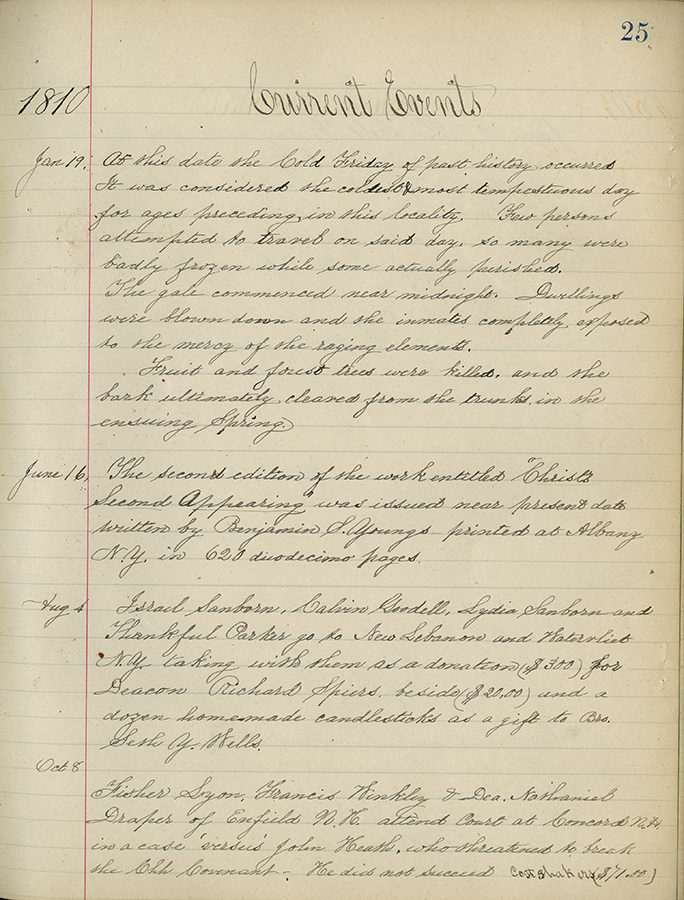 25
1810 Current Events
Jan 19. At this date the Cold Friday of past history occurred
It was considered the coldest & most tempestuous day
for ages preceding, in this locality. Few persons
attempted to travel on said day, so many were
badly frozen while some actually perished.
The gale commenced near midnight. Dwellings
were blown down and the inmates completly exposed
to the mercy of the raging elements.
Fruit and forest trees were killed, and the
bark ultimately cleaved from the trunks in the
ensuing Spring.
June 16, The second edition of the work entitled "Christ's
Second Appearing" was issued near present date
written by Benjamin S. Youngs printed at Albany
N.Y. in 620 duodecimo pages.
Aug 4 Israil Sanborn, Calvin Goodell, Lydia Sanborn and
Thankful Parker go to New Lebanon and Watervliet
N.Y. taking with them as a donation ($300) for
Deacon Richard Spiers, beside ($20.00) and a
dozen homemade candlesticks as a gift to Bro.
Seth Y. Wells.
Oct 8
Fisher Lyon, Francis Winkley & Dea. Nathaniel
Draper of Enfield N.H. attend Court at Concord N.H.
in a case 'versus' John Heath, who threatened to break
the Chh Covenant - He did not succeed Cost shakers ($71.00)